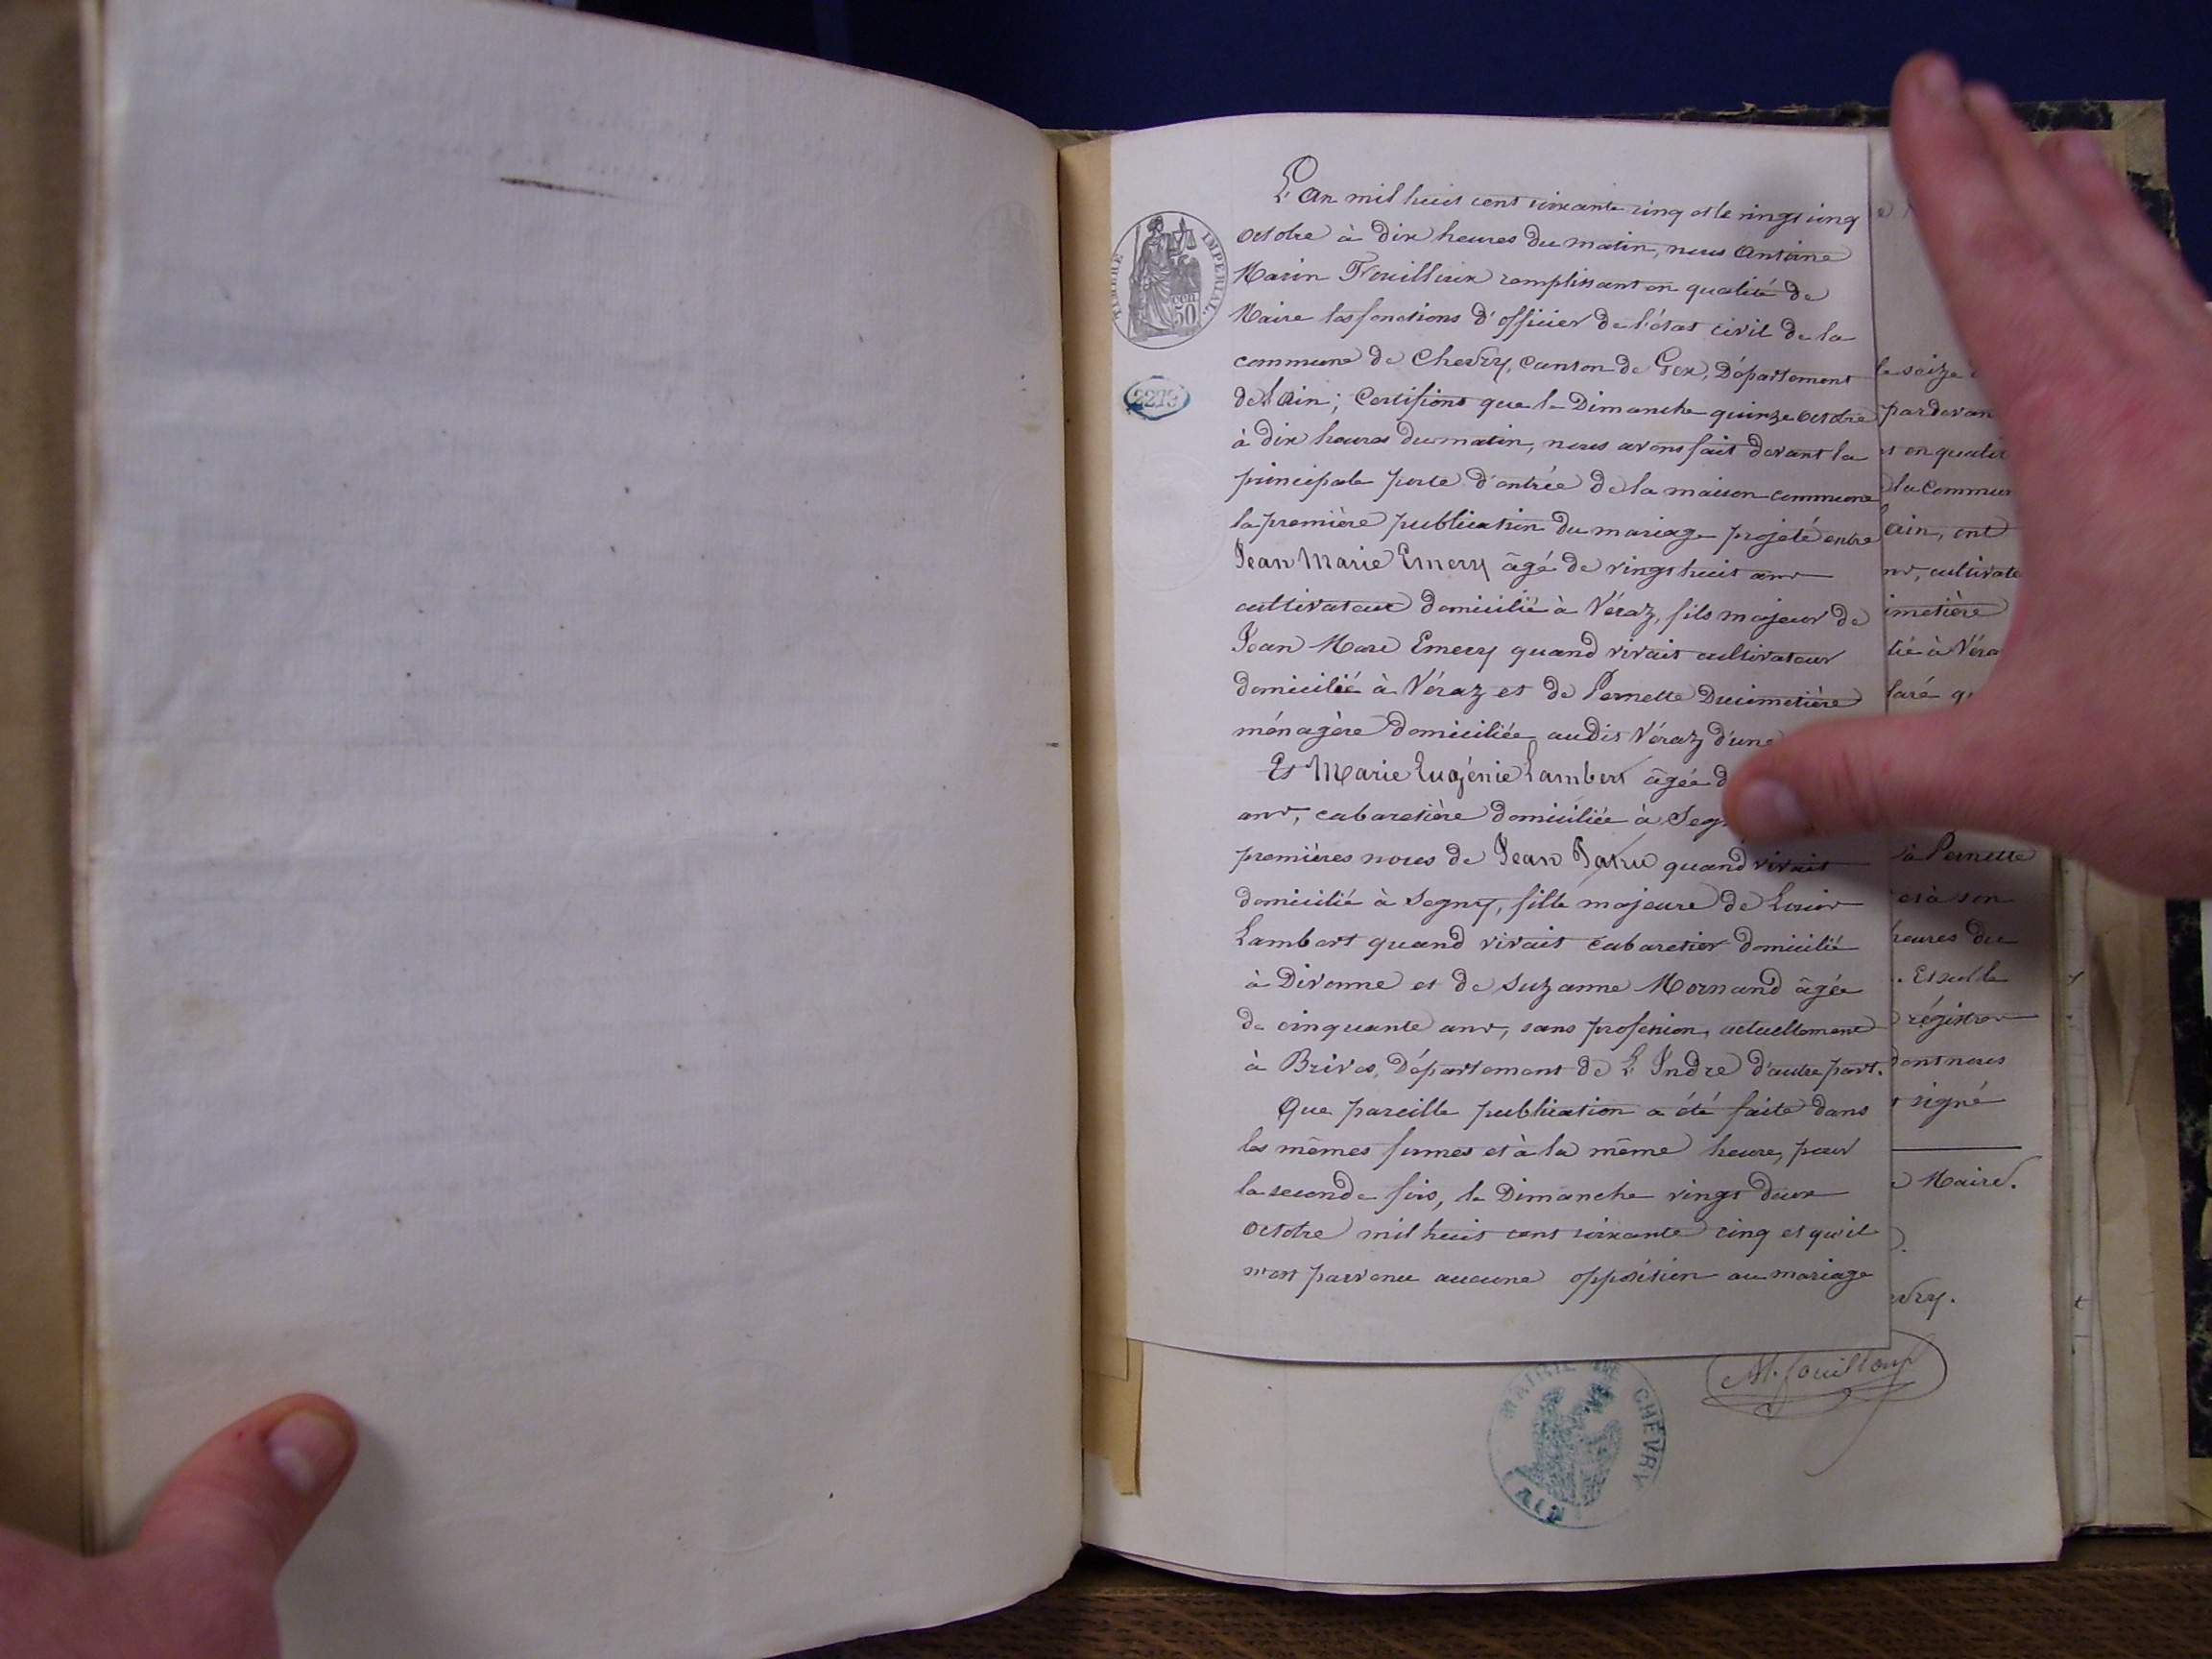 L'an mil huit cent soixante cinq et le vingt cinq
octobre à dix heures du matin, nous Antoine
Marin Fouilloux remplissant en qualité de
Maire les fonctions d'officier de l'état civil de la
commune de Chevry, canton de Gex, Département
de l'ain; Certifions que le Dimanche quinze octobre
à dix heures du matin, nous avons fait devant la
principale porte d'entrée de la maison commune
la première publication du mariage projeté entre
Jean Marie Emery âgé de vingt huit ans
cultivateur domicilié à Véraz, fils majeur de
Jean Marc Emery quand vivait cultivateur
domicilié à Véraz et de Pernette Ducimetière
ménagère domiciliée audit Véraz d'une
Et Marie Eugénie Lambert âgée d
ans, cabaretière domiciliée à Seg
premières noces de Jean quand vivait
domicilié à Segny, fille majeure de Louis
Lambert quand vivait cabaretier domicilié
à Divonne et de Suzanne Mornand âgée
de cinquante ans, sans profession, actuellement
à Brives, Département de L'Indre d'autre part.
Que pareille publication a été faite dans
les mêmes formes et à la même heure, pour
la seconde fois, le Dimanche vingt deux
octobre mil huit cent soixante cinq et qu'il
n'est parvenu aucune opposition au mariage
TIMBRE IMPERIAL
50
2219
le seize
par devan
en qualit
la commun
ain, ont
cultivate
imetière
lié à Véra
laré q
à Pernette
et à son
heures du
. Et sur le
régistre
dont nous
signé
Maire.
vry.
M. fouilloux
MAIRIE DE CHEVRY
AIN